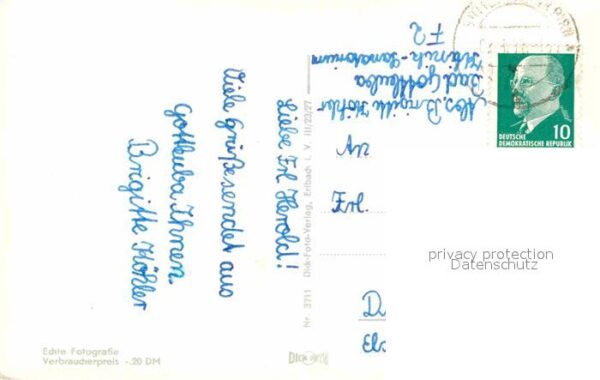 Liebe Frl. Herold!
Viele Grüße sendet aus
Gottleuba Ihnen.
Brigitte Köhler
Abs. Brigitte Köhler
Bad Gottleuba
Sanatorium
F2
An
Frl.
D
Nr. 3711 Dick-Foto-Verlag, Erlbach i. V. III/23/27
10
DEUTSCHE
DEMOKRATISCHE REPUBLIK
privacy protection
Datenschutz
Echte Fotografie
Verbraucherpreis -.20 DM
DICK